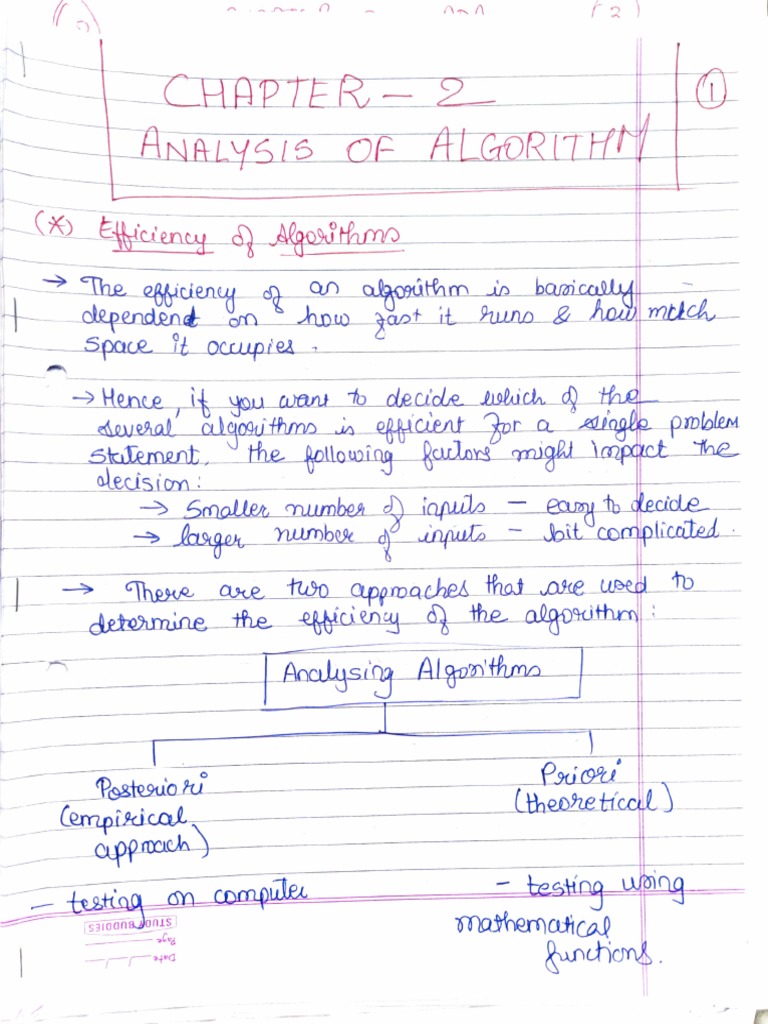 CHAPTER - 2
①
ANALYSIS OF ALGORITHM
(*) Efficiency of Algorithms
→ The efficiency of an algorithm is basically
dependent on how fast it runs & how much
space it occupies.
→ Hence, if you want to decide which of the
several algorithms is efficient for a single problem
statement, the following factors might impact the
decision:
→ Smaller number of inputs - easy to decide
→ larger number of inputs - bit complicated.
→ There are two approaches that are used to
determine the efficiency of the algorithm:
Analysing Algorithms
Posteriori
(empirical
approach)
- testing on computer
Priori
(theoretical)
- testing using
mathematical
functions.
STUDY BUDDIES
Page
Date